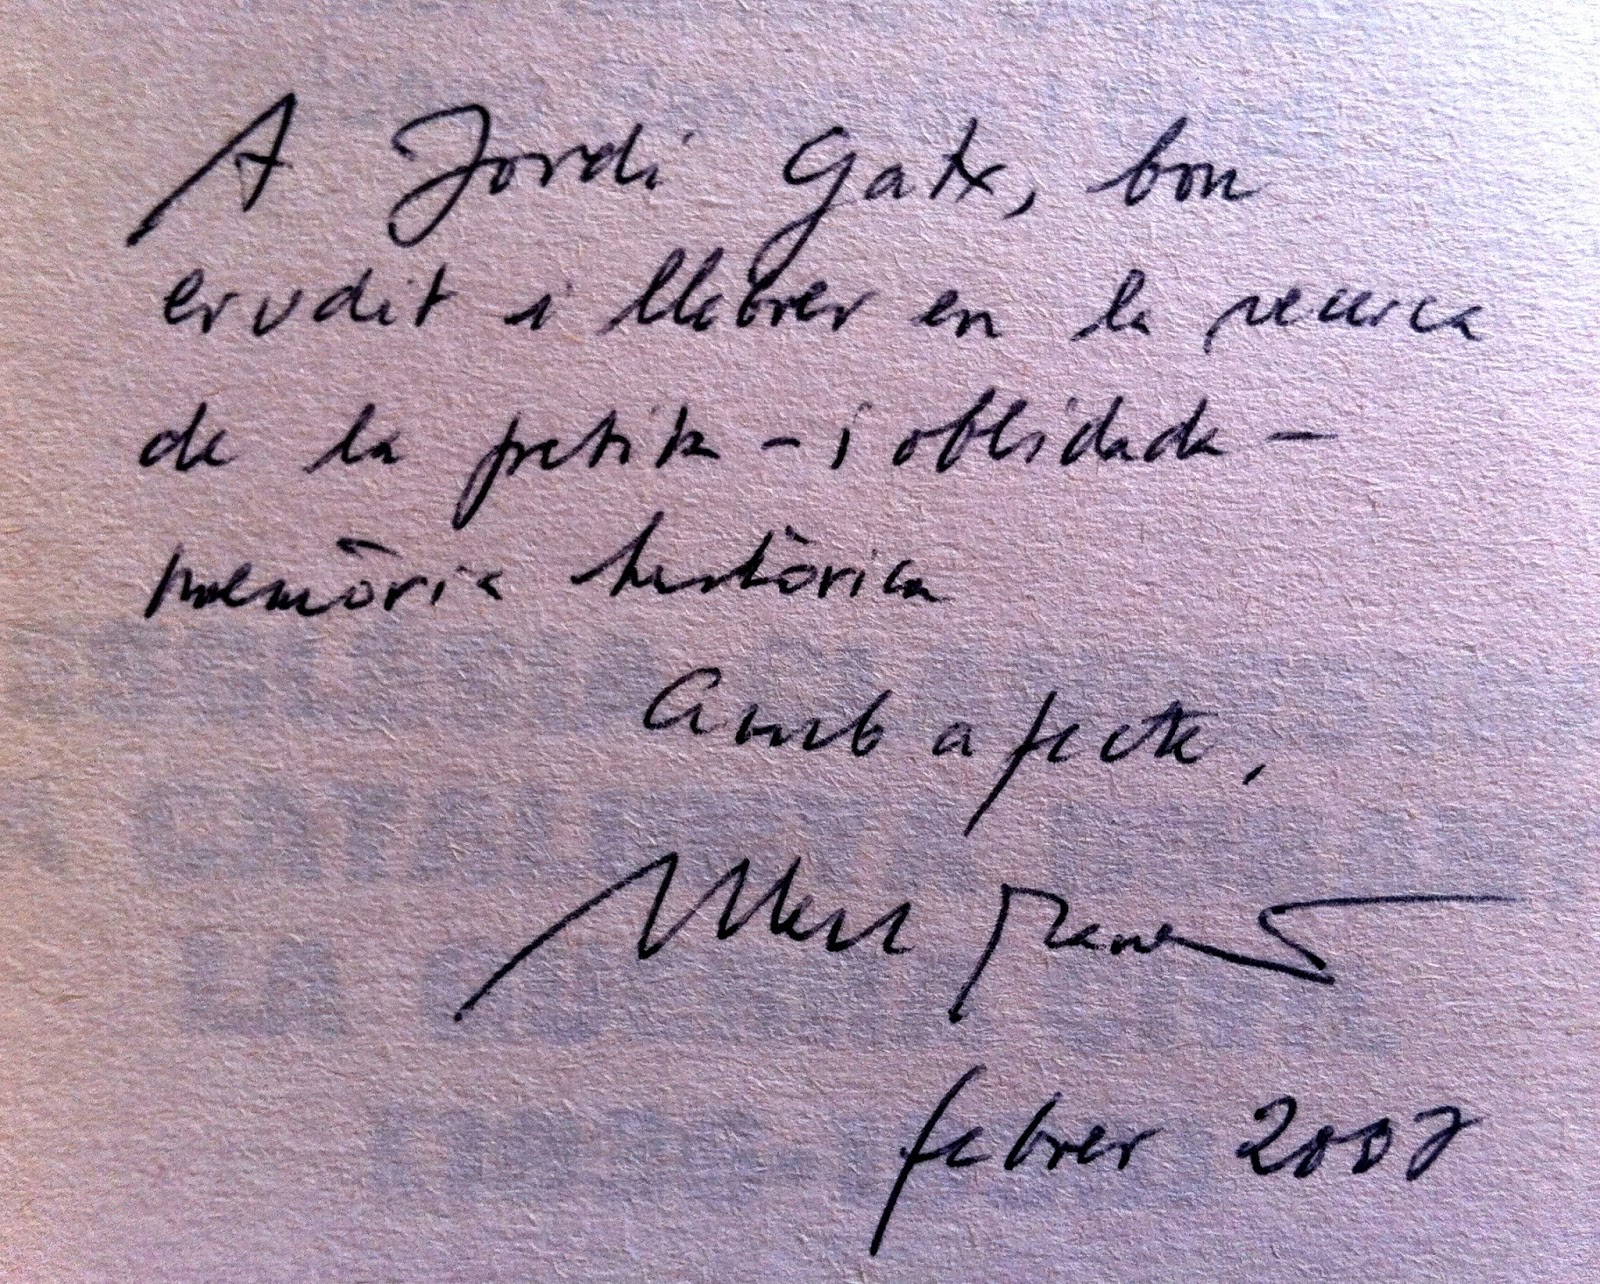 A Jordi Gatx, bon
erudit i llebrer en la recerca
de la petita - i oblidada -
memòria històrica
Amb afecte,
Albert Manent
febrer 2007